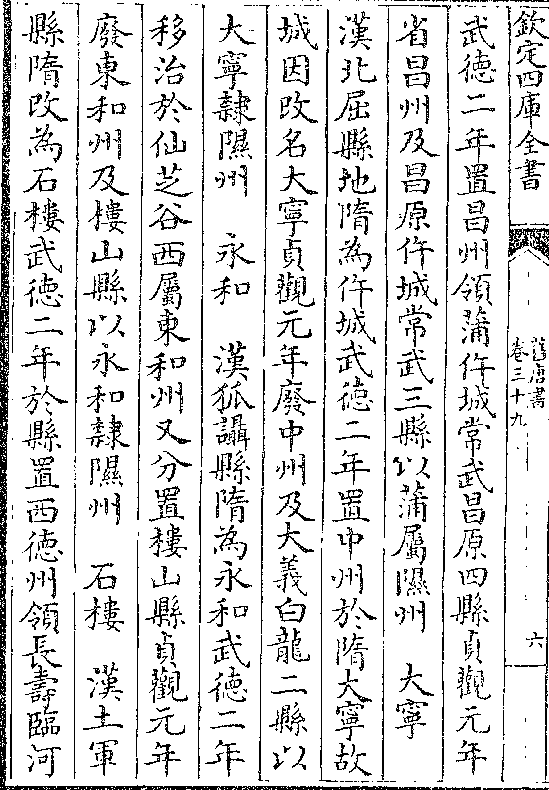 欽定四庫全書
舊唐書
卷三十九
六
武德二年置昌州領蒲仵城常武昌原四縣貞觀元年
省昌州及昌原仵城常武三縣以蒲屬隰州　大寧
漢北屈縣地隋為仵城武德二年置中州於隋大寧故
城因改名大寧貞觀元年廢中州及大義白龍二縣以
大寧隷隰州　永和　漢狐讘縣隋為永和武德二年
移治於仙芝谷西屬東和州又分置樓山縣貞觀元年
廢東和州及樓山縣以永和隷隰州　石樓　漢土軍
縣隋改為石樓武德二年於縣置西德州領長壽臨河